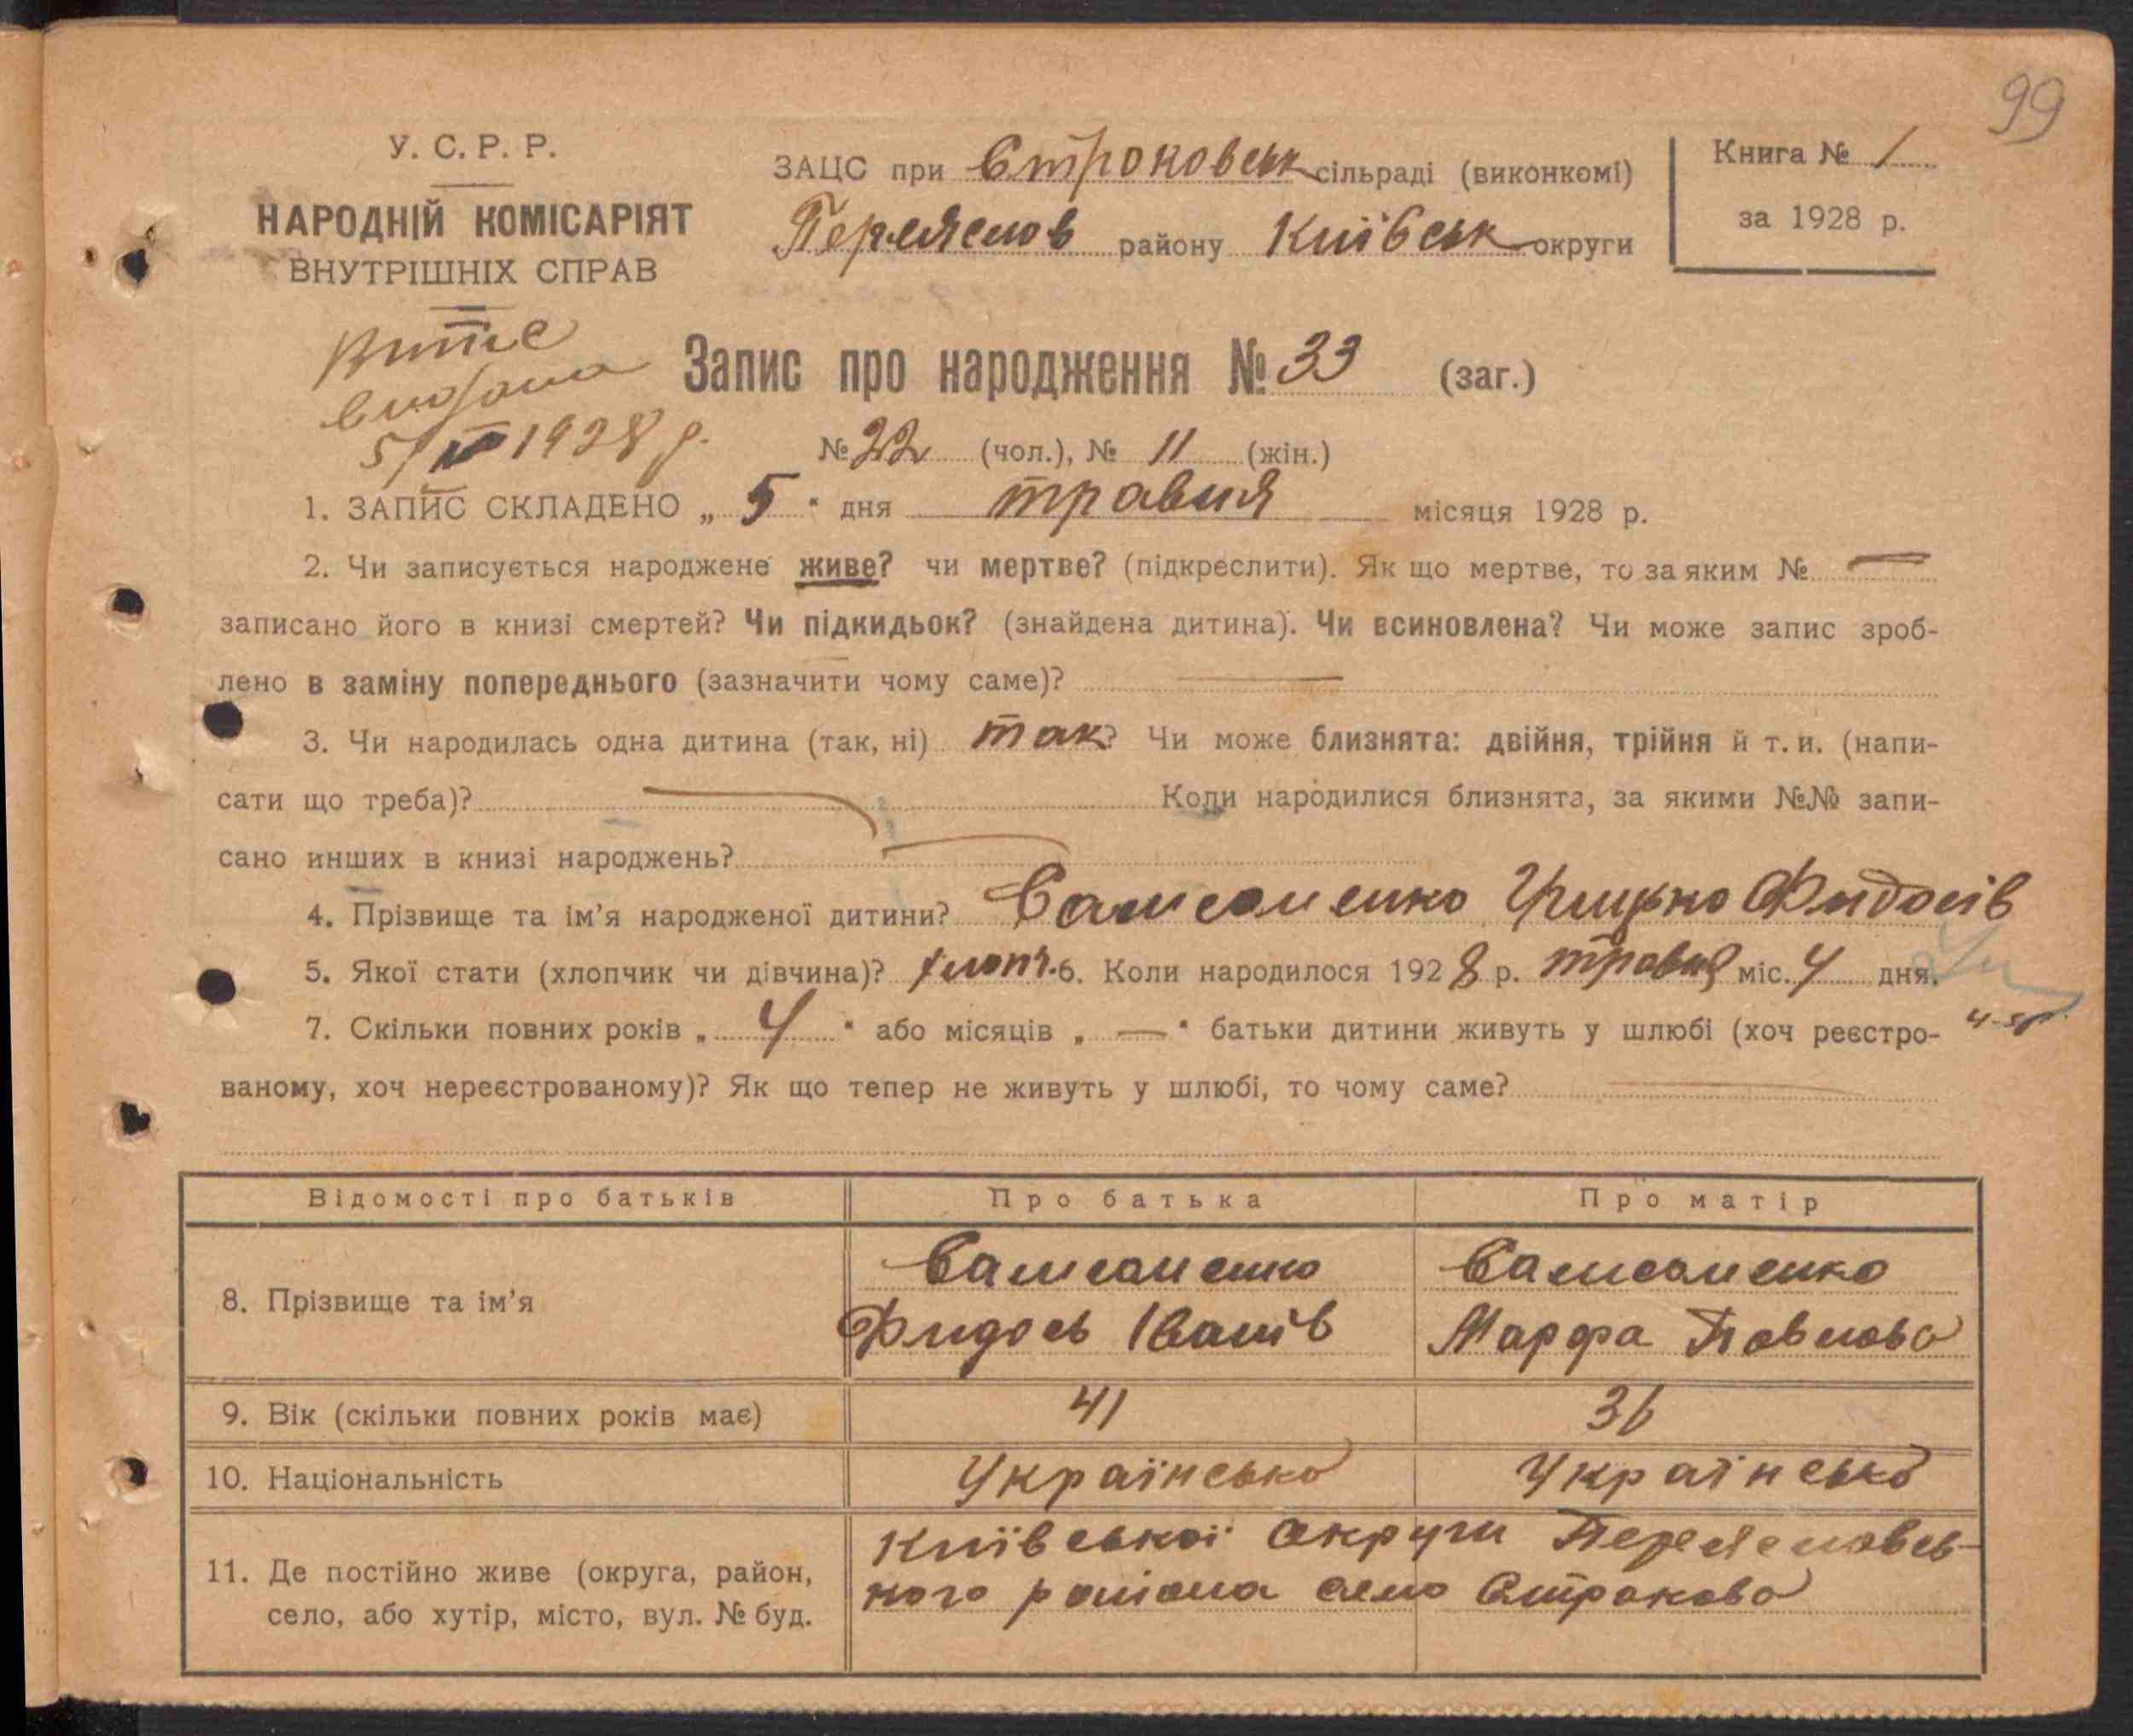 99
У. С. Р. Р.
НАРОДНІЙ КОМІСАРІЯТ
ВНУТРІШНІХ СПРАВ
ЗАЦС при Строковськ сільраді (виконкомі)
Переяслов району Київськ округи
Книга № 1
за 1928 р.
видана
5/ 1928 р.
Запис про народження № 33 (заг.)
№ 22 (чол.), № 11 (жін.)
1. ЗАПИС СКЛАДЕНО „ 5 " дня травня місяця 1928 р.
2. Чи записується народжене живе? чи мертве? (підкреслити). Як що мертве, то за яким № —
записано його в книзі смертей? Чи підкидьок? (знайдена дитина). Чи всиновлена? Чи може запис зроб-
лено в заміну попереднього (зазначити чому саме)? —
3. Чи народилась одна дитина (так, ні) так? Чи може близнята: двійня, трійня й т. и. (напи-
сати що треба)? — Коли народилися близнята, за якими №№ запи-
сано инших в книзі народжень? —
4. Прізвище та ім'я народженої дитини? Самсоненко Грицько Фидосів
5. Якої стати (хлопчик чи дівчина)? хлопч. 6. Коли народилося 1928 р. травня міс. 4 дня.
7. Скільки повних років „ 4 " або місяців „ — " батьки дитини живуть у шлюбі (хоч реєстро-
ваному, хоч нереєстрованому)? Як що тепер не живуть у шлюбі, то чому саме? —
Відомості про батьків Про батька Про матір
8. Прізвище та ім'я
Самсоненко
Фидось Іванів
Самсоненко
Марфа Павлова
9. Вік (скільки повних років має) 41 36
10. Національність Українська Українська
11. Де постійно живе (округа, район,
село, або хутір, місто, вул. № буд.
Київської округи Переясловсь-
кого района село Строкова